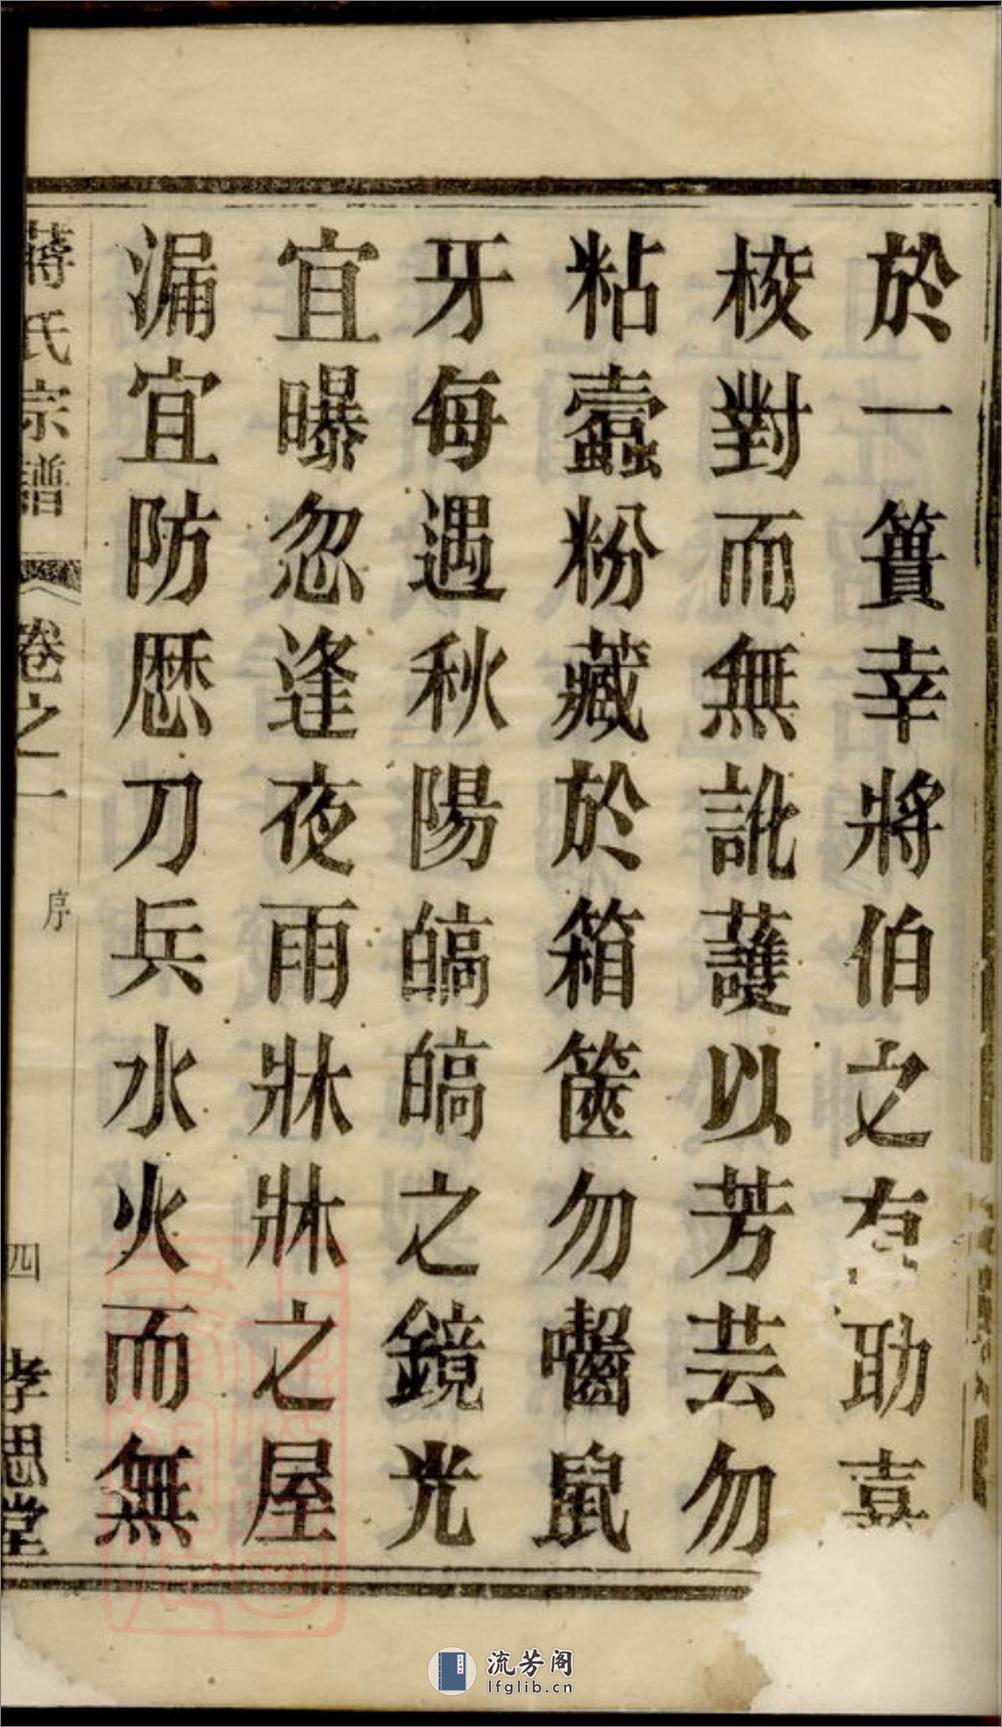 於一簣幸將伯之有助喜
校對而無訛護以芳芸勿
粘蠹粉藏於箱篋勿嚙鼠
牙每遇秋陽皜皜之鏡光
宜曝忽逢夜雨牀牀之屋
漏宜防厯刀兵水火而無
蔣氏宗譜 卷之一 序 四 孝思堂
流芳阁
lfglib.cn